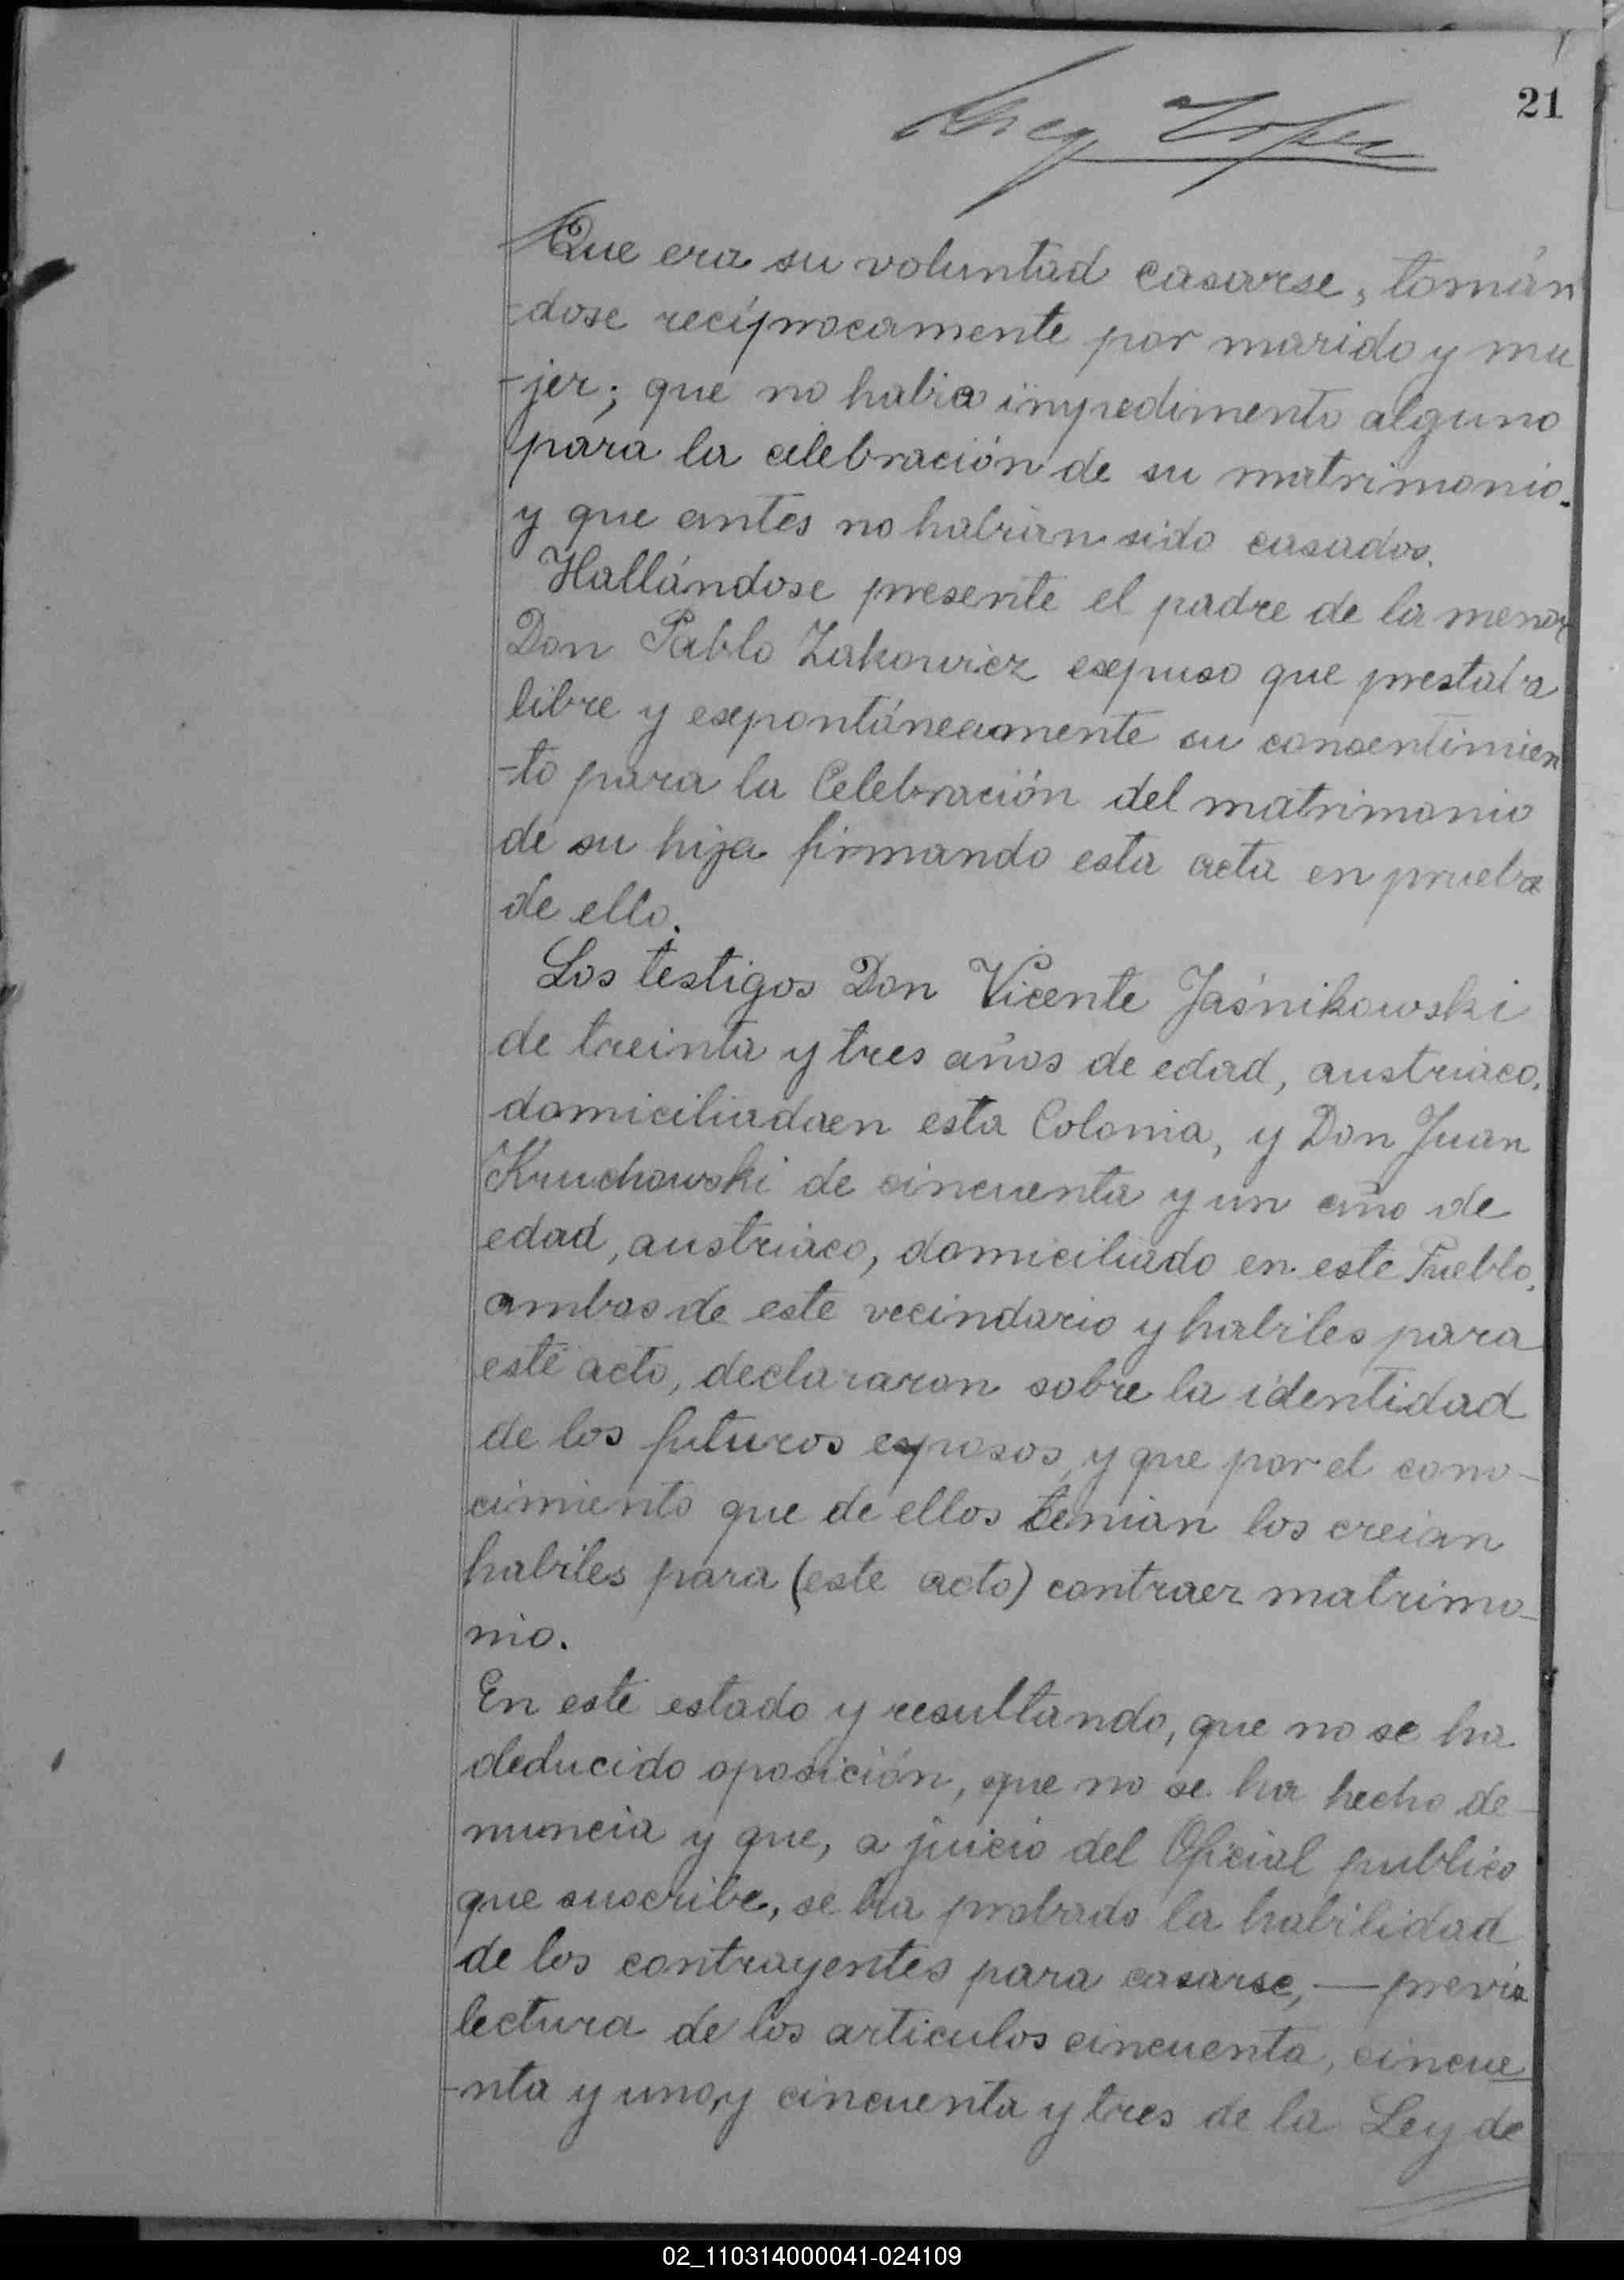 21
Que era su voluntad casarse, tomán
-dose recíprocamente por marido y mu
-jer; que no habia impedimento alguno
para la celebración de su matrimonio.
y que antes no habian sido casados.
Hallándose presente el padre de la menor
Don Pablo Zakowicz expuso que prestaba
libre y expontáneamente su consentimien
-to para la Celebración del matrimonio
de su hija firmando esta acta en prueba
de ello.
Los testigos Don Vicente Jaśnikowski
de treinta y tres años de edad, austriaco,
domiciliadoen esta Colonia, y Don Juan
Kruchowski de cincuenta y un año de
edad, austriaco, domiciliado en este Pueblo,
ambos de este vecindario y habiles para
este acto, declararon sobre la identidad
de los futuros esposos, y que por el cono-
cimiento que de ellos tenian los creian
habiles para (este acto) contraer matrimo-
nio.
En este estado y resultando, que no se ha
deducido oposición, que no se ha hecho de-
nuncia y que, a juicio del Oficial publico
que suscribe, se ha probado la habilidad
de los contrayentes para casarse, — previa
lectura de los articulos cincuenta, cincue
-nta y uno, y cincuenta y tres de la Ley de
02_110314000041-024109